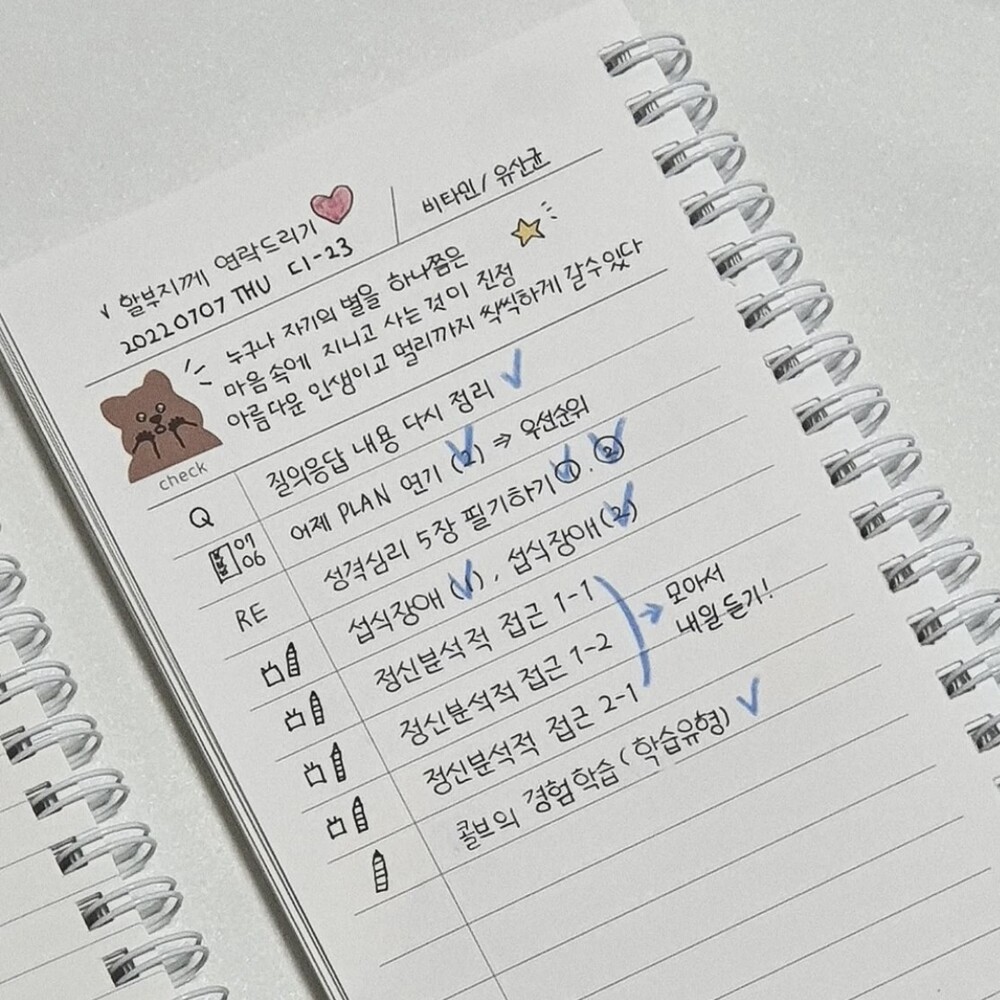 √ 할부지께 연락드리기
비타민 / 유산균
20220707 THU D-23
누구나 자기의 별을 하나쯤은
마음속에 지니고 사는 것이 진정
아름다운 인생이고 멀리까지 씩씩하게 갈수있다
check
Q 질의응답 내용 다시 정리 √
07 06 어제 PLAN 연기 (2) ⇒ 우선순위
RE 성격심리 5장 필기하기 ①. ②
섭식장애 (1), 섭식장애 (2)
정신분석적 접근 1-1
정신분석적 접근 1-2
정신분석적 접근 2-1
→ 모아서
내일 듣기!
콜브의 경험학습 (학습유형) √